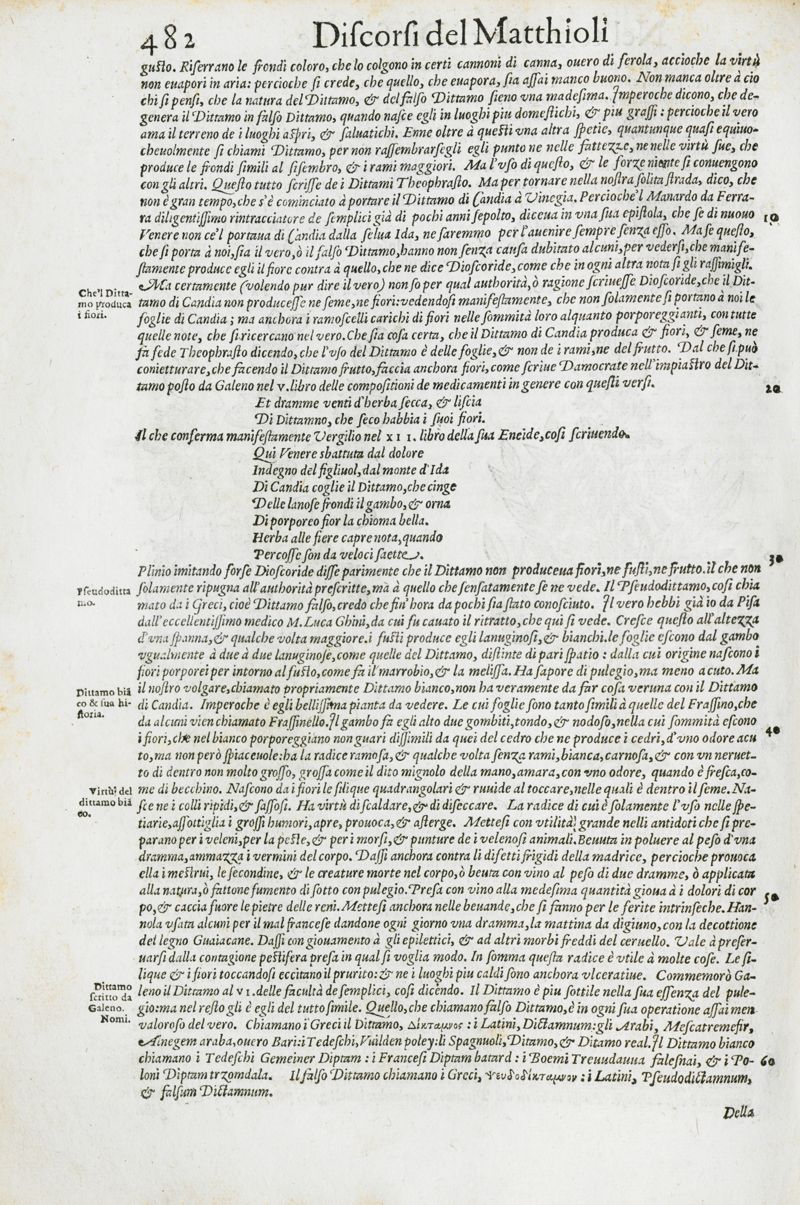 482 Diſcorſi del Matthioli
guſto. Riſerrano le frondi coloro, che lo colgono in certi cannoni di canna, ouero di ferola, accioche la virtù
non euapori in aria: percioche ſi crede, che quello, che euapora, ſia aſſai manco buono. Non manca oltre à cio
chi ſi penſi, che la natura del Dittamo, & del falſo Dittamo ſieno vna madeſima. Imperoche dicono, che de-
genera il Dittamo in falſo Dittamo, quando naſce egli in luoghi piu domeſtichi, & piu graſſi: percioche il vero
ama il terreno de i luoghi aſpri, & ſaluatichi. Enne oltre à queſti vna altra ſpetie, quantunque quaſi equiuo-
cheuolmente ſi chiami Dittamo, per non raſſembrarſegli egli punto ne nelle fattezze, ne nelle virtù ſue, che
produce le frondi ſimili al ſiſembro, & i rami maggiori. Ma l'vſo di queſto, & le forze niente ſi conuengono
con gli altri. Queſto tutto ſcriſſe de i Dittami Theophraſto. Ma per tornare nella noſtra ſolita ſtrada, dico, che
non è gran tempo, che s'è cominciato à portare il Dittamo di Candia à Vinegia. Percioche'l Manardo da Ferra-
ra diligentiſſimo rintracciatore de ſemplici già di pochi anni ſepolto, diceua in vna ſua epiſtola, che ſe di nuouo 10
Venere non ce'l portaua di Candia dalla ſelua Ida, ne ſaremmo per l'auenire ſempre ſenza eſſo. Ma ſe queſto,
che ſi porta à noi, ſia il vero, ò il falſo Dittamo, hanno non ſenza cauſa dubitato alcuni, per vederſi, che manife-
ſtamente produce egli il fiore contra à quello, che ne dice Dioſcoride, come che in ogni altra nota ſi gli raſſimigli.
Che'l Ditta-
mo produca
i fiori.
Ma certamente (volendo pur dire il vero) non ſo per qual authorità, ò ragione ſcriueſſe Dioſcoride, che il Dit-
tamo di Candia non produceſſe ne ſeme, ne fiori: vedendoſi manifeſtamente, che non ſolamente ſi portano à noi le
foglie di Candia; ma anchora i ramoſcelli carichi di fiori nelle ſommità loro alquanto porporeggianti, con tutte
quelle note, che ſi ricercano nel vero. Che ſia coſa certa, che il Dittamo di Candia produca & fiori, & ſeme, ne
fa fede Theophraſto dicendo, che l'vſo del Dittamo è delle foglie, & non de i rami, ne del frutto. Dal che ſi può
conietturare, che facendo il Dittamo frutto, faccia anchora fiori, come ſcriue Damocrate nell'impiaſtro del Dit-
tamo poſto da Galeno nel v. libro delle compoſitioni de medicamenti in genere con queſti verſi. 20
Et dramme venti d'herba ſecca, & liſcia
Di Dittamno, che ſeco habbia i ſuoi fiori.
Il che conferma manifeſtamente Vergilio nel XII. libro della ſua Eneide, coſi ſcriuendo.
Qui Venere sbattuta dal dolore
Indegno del figliuol, dal monte d'Ida
Di Candia coglie il Dittamo, che cinge
Delle lanoſe frondi il gambo, & orna
Di porporeo fior la chioma bella.
Herba alle fiere capre nota, quando
Percoſſe ſon da veloci ſaette. 30
Plinio imitando forſe Dioſcoride diſſe parimente che il Dittamo non produceua fiori, ne fuſti, ne frutto. il che non
Pſeudoditta
mo.
ſolamente ripugna all'authorità preſcritte, mà à quello che ſenſatamente ſe ne vede. Il Pſeudodittamo, coſi chia
mato da i Greci, cioè Dittamo falſo, credo che fin'hora da pochi ſia ſtato conoſciuto. Il vero hebbi già io da Piſa
dall'eccellentiſſimo medico M. Luca Ghini, da cui fu cauato il ritratto, che quì ſi vede. Creſce queſto all'altezza
d'vna ſpanna, & qualche volta maggiore. i fuſti produce egli lanuginoſi, & bianchi. le foglie eſcono dal gambo
vgualmente à due à due lanuginoſe, come quelle del Dittamo, diſtinte di pari ſpatio: dalla cui origine naſcono i
fiori porporei per intorno al fuſto, come fa il marrobio, & la meliſſa. Ha ſapore di pulegio, ma meno acuto. Ma
Dittamo biã
co & ſua hi-
ſtoria.
il noſtro volgare, chiamato propriamente Dittamo bianco, non ha veramente da far coſa veruna con il Dittamo
di Candia. Imperoche è egli belliſſima pianta da vedere. Le cui foglie ſono tanto ſimili à quelle del Fraſſino, che
da alcuni vien chiamato Fraſſinello. Il gambo fa egli alto due gombiti, tondo, & nodoſo, nella cui ſommità eſcono 40
i fiori, che nel bianco porporeggiano non guari diſſimili da quei del cedro che ne produce i cedri, d'vno odore acu
to, ma non però ſpiaceuole: ha la radice ramoſa, & qualche volta ſenza rami, bianca, carnoſa, & con vn neruet-
to di dentro non molto groſſo, groſſa come il dito mignolo della mano, amara, con vno odore, quando è freſca, co-
Virtù del
dittamo biã
co.
me di becchino. Naſcono da i fiori le ſilique quadrangolari & ruuide al toccare, nelle quali è dentro il ſeme. Na-
ſce ne i colli ripidi, & ſaſſoſi. Ha virtù di ſcaldare, & di diſeccare. La radice di cui è ſolamente l'vſo nelle ſpe-
tiarie, aſſottiglia i groſſi humori, apre, prouoca, & aſterge. Metteſi con vtilità grande nelli antidoti che ſi pre-
parano per i veleni, per la peſte, & per i morſi, & punture de i velenoſi animali. Beuuta in poluere al peſo d'vna
dramma, ammazza i vermini del corpo. Daſſi anchora contra li difetti frigidi della madrice, percioche prouoca
ella i meſtrui, le ſecondine, & le creature morte nel corpo, ò beuta con vino al peſo di due dramme, ò applicata
alla natura, ò fattone fumento di ſotto con pulegio. Preſa con vino alla medeſima quantità gioua à i dolori di cor 50
po, & caccia fuore le pietre delle reni. Metteſi anchora nelle beuande, che ſi fanno per le ferite intrinſeche. Han-
nola vſata alcuni per il mal franceſe dandone ogni giorno vna dramma, la mattina da digiuno, con la decottione
del legno Guaiacane. Daſſi con giouamento à gli epilettici, & ad altri morbi freddi del ceruello. Vale à preſer-
uarſi dalla contagione peſtifera preſa in qual ſi voglia modo. In ſomma queſta radice è vtile à molte coſe. Le ſi-
lique & i fiori toccandoſi eccitano il prurito: & ne i luoghi piu caldi ſono anchora vlceratiue. Commemorò Ga-
Dittamo
ſcritto da
Galeno.
Nomi.
leno il Dittamo al VI. delle facultà de ſemplici, coſi dicẽdo. Il Dittamo è piu ſottile nella ſua eſſenza del pule-
gio: ma nel reſto gli è egli del tutto ſimile. Quello, che chiamano falſo Dittamo, è in ogni ſua operatione aſſai men
valoroſo del vero. Chiamano i Greci il Dittamo, Δίκταμνος: i Latini, Dictamnum: gli Arabi, Meſcatremeſir,
Anegem araba, ouero Bari: i Tedeſchi, Vuilden poley: li Spagnuoli, Ditamo, & Ditamo real. Il Dittamo bianco
chiamano i Tedeſchi Gemeiner Diptam: i Franceſi Diptam batard: i Boemi Treuudauua faleſnai, & i Po- 60
loni Diptam trzomdala. Il falſo Dittamo chiamano i Greci, Ψευδοδίκταμνον: i Latini, Pſeudodictamnum,
& falſum Dictamnum.
Della